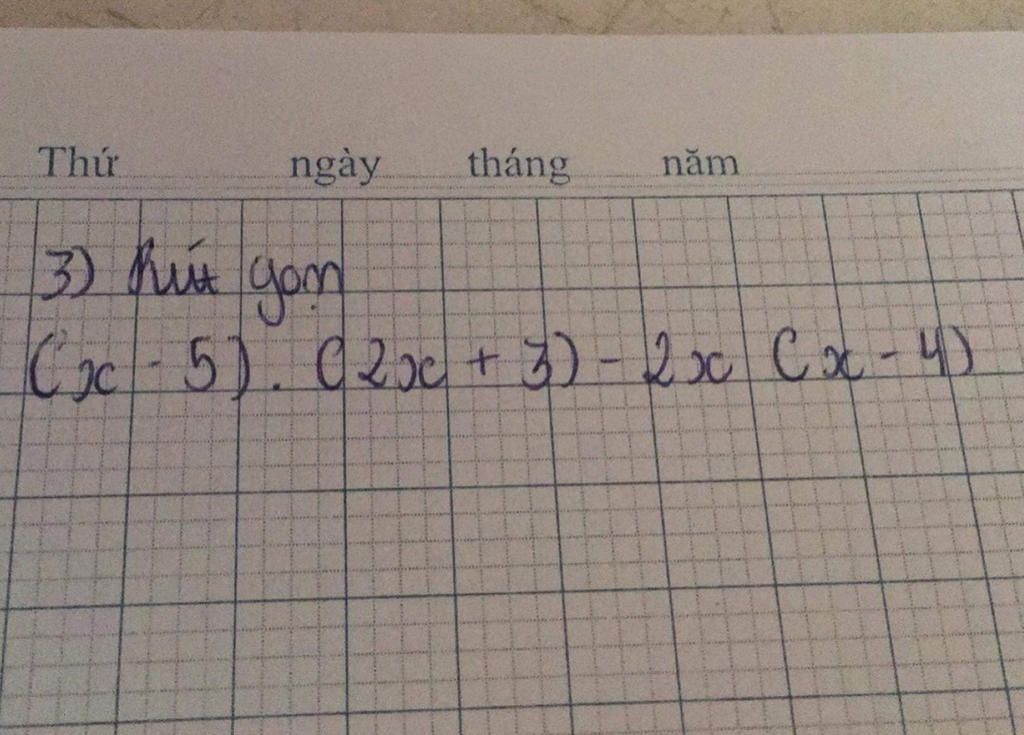 Thứ ngày tháng năm
3) Rút gọn
(x - 5). (2x + 3) - 2x (x - 4)